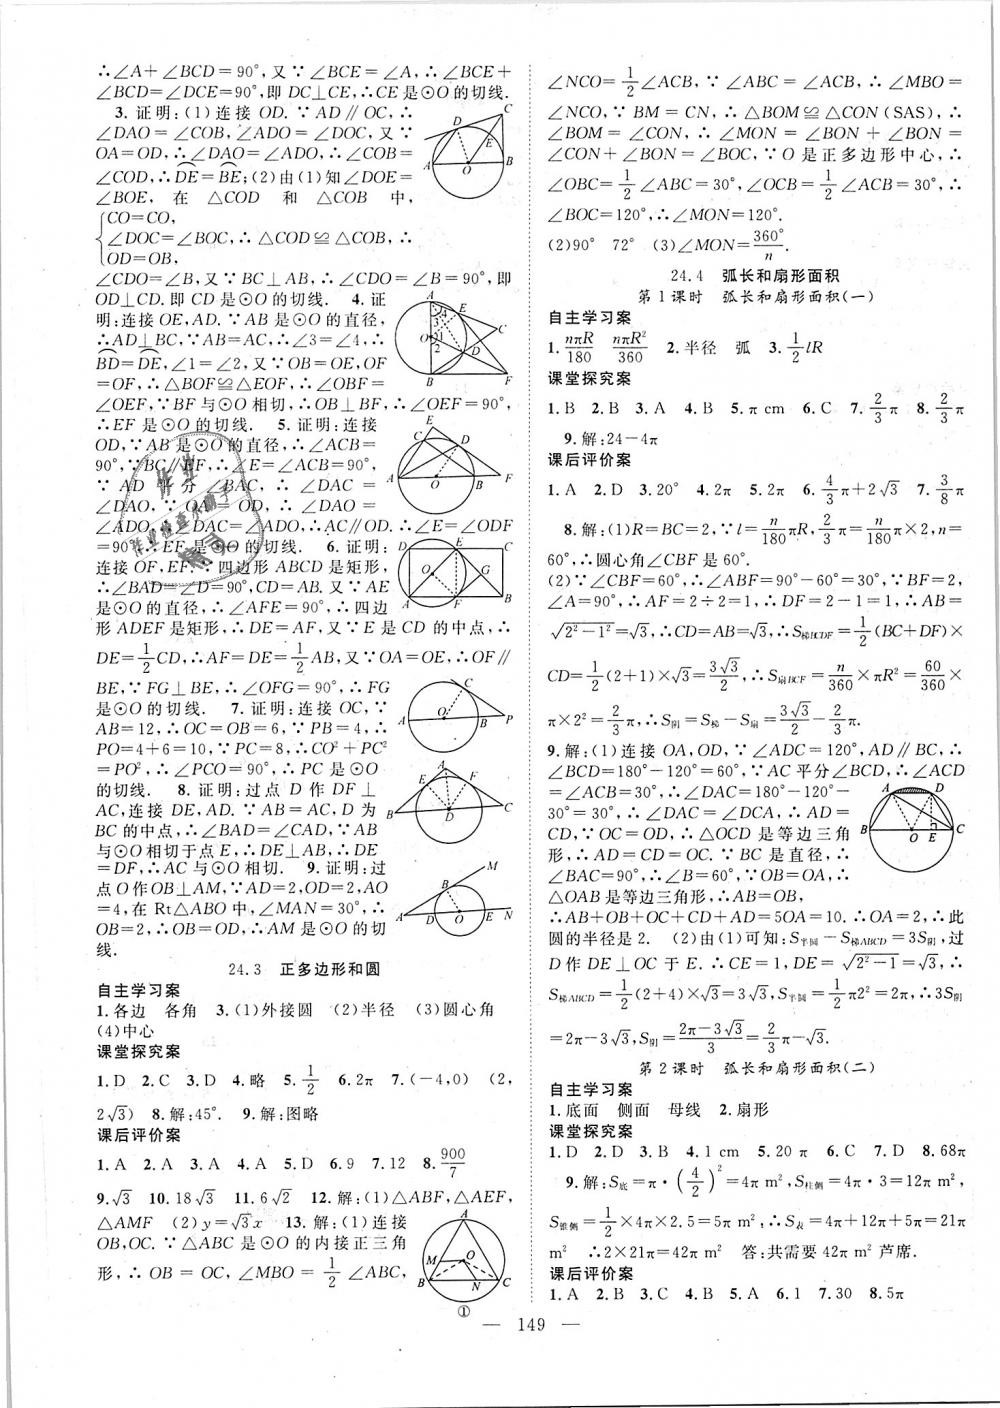 ∴∠A+∠BCD=90°,又∵∠BCE=∠A,∴∠BCE+
∠BCD=∠DCE=90°,即 DC⊥CE,∴CE是⊙O的切线.
3. 证明:(1)连接 OD.∵AD∥OC,∴
∠DAO=∠COB,∠ADO=∠DOC,又∵
OA=OD,∴∠DAO=∠ADO,∴∠COB=
∠COD,∴DE=BE;(2)由(1)知∠DOE=
∠BOE, 在 △COD 和 △COB 中,
CO=CO,
∠DOC=∠BOC,∴△COD≌△COB,∴
OD=OB,
∠CDO=∠B,又∵BC⊥AB,∴∠CDO=∠B=90°,即
OD⊥CD.即 CD 是⊙O 的切线. 4. 证
明:连接 OE,AD.∵AB 是⊙O 的直径,
∴AD⊥BC,∵AB=AC,∴∠3=∠4,∴
BD=DE,∠1=∠2,又∵OB=OE,OF
=OF,∴△BOF≌△EOF,∴∠OBF=
∠OEF,∵BF 与⊙O 相切,∴OB⊥BF,∴∠OEF=90°,
∴EF 是⊙O 的切线. 5. 证明:连接
OD,∵AB 是⊙O 的直径,∴∠ACB=
90°,∵BC∥EF,∴∠E=∠ACB=90°,
∵AD 平分∠BAC,∴∠DAC=
∠DAO,∵OA=OD,∴∠DAO=
∠ADO,∴∠DAC=∠ADO,∴AC∥OD,∴∠E=∠ODF
=90°,∴EF 是⊙O 的切线. 6. 证明:
连接 OF,EF.∵四边形 ABCD 是矩形,
∴∠BAD=∠D=90°,CD=AB.又∵AE
是⊙O 的直径,∴∠AFE=90°,∴四边
形 ADEF 是矩形,∴DE=AF,又∵E 是 CD 的中点,∴
DE=1/2CD,∴AF=DE=1/2AB,又∵OA=OE,∴OF∥
BE,∵FG⊥BE,∴∠OFG=90°,∴FG
是⊙O 的切线. 7. 证明:连接 OC,∵
AB=12,∴OC=OB=6,∵PB=4,∴
PO=4+6=10,∵PC=8,∴CO²+PC²
=PO²,∴∠PCO=90°,∴PC 是⊙O
的切线. 8. 证明:过点 D 作 DF⊥
AC,连接 DE,AD.∵AB=AC,D 为
BC 的中点,∴∠BAD=∠CAD,∵AB
与⊙O 相切于点 E,∴DE⊥AB,∴DE
=DF,∴AC 与⊙O 相切. 9. 证明:过
点 O 作 OB⊥AM,∵AD=2,OD=2,AO
=4,在 Rt△ABO 中,∠MAN=30°,∴
OB=2,∴OB=OD,∴AM 是⊙O 的切
线.
24.3 正多边形和圆
自主学习案
1. 各边 各角 3. (1)外接圆 (2)半径 (3)圆心角
(4)中心
课堂探究案
1. D 2. C 3. D 4. 略 5. 1/2 6. 2π 7. (-4,0) (2,
2√3) 8. 解:45°. 9. 解:图略
课后评价案
1. A 2. A 3. A 4. B 5. D 6. 9 7. 12 8. 900/7
9. √3 10. 18√3 11. 6√2 12. 解:(1)△ABF,△AEF,
△AMF (2)y=√3x 13. 解:(1)连接
OB,OC.∵△ABC 是⊙O 的内接正三角
形,∴OB=OC,∠MBO=1/2∠ABC,
①
∠NCO=1/2∠ACB,∵∠ABC=∠ACB,∴∠MBO=
∠NCO,∵BM=CN,∴△BOM≌△CON(SAS),∴
∠BOM=∠CON,∴∠MON=∠BON+∠BOM=
∠CON+∠BON=∠BOC,∵O 是正多边形中心,∴
∠OBC=1/2∠ABC=30°,∠OCB=1/2∠ACB=30°,∴
∠BOC=120°,∴∠MON=120°.
(2)90° 72° (3)∠MON=360°/n.
24.4 弧长和扇形面积
第 1 课时 弧长和扇形面积(一)
自主学习案
1. nπR/180 nπR²/360 2. 半径 弧 3. 1/2 lR
课堂探究案
1. B 2. B 3. A 4. B 5. π cm 6. C 7. 2/3π 8. 2/3π
9. 解:24-4π
课后评价案
1. A 2. D 3. 20° 4. 2π 5. 2π 6. 4/3π+2√3 7. 3/8π
8. 解:(1)R=BC=2,∵l=n/180πR,2/3π=n/180π×2,n=
60°,∴圆心角∠CBF 是 60°.
(2)∵∠CBF=60°,∴∠ABF=90°-60°=30°,∵BF=2,
∠A=90°,∴AF=2÷2=1,∴DF=2-1=1,∴AB=
√2²-1²=√3,∴CD=AB=√3,∴S梯BCDF=1/2(BC+DF)×
CD=1/2(2+1)×√3=3√3/2,∴S扇BCF=n/360×πR²=60/360×
π×2²=2/3π,∴S阴=S梯-S扇=3√3/2-2/3π.
9. 解:(1)连接 OA,OD,∵∠ADC=120°,AD∥BC,∴
∠BCD=180°-120°=60°,∵AC 平分∠BCD,∴∠ACD
=∠BCA=30°,∴∠DAC=180°-120°-
30°=30°,∴∠DAC=∠DCA,∴AD=
CD,∵OC=OD,∴△OCD 是等边三角
形,∴AD=CD=OC.∵BC 是直径,∴
∠BAC=90°,∴∠B=60°,∵OB=OA,∴
△OAB 是等边三角形,∴AB=OB,
∴AB+OB+OC+CD+AD=5OA=10.∴OA=2,∴此
圆的半径是 2. (2)由(1)可知:S半圆-S梯ABCD=3S阴,过
D 作 DE⊥OC 于 E.∴OE=CE=1,DE=√2²-1=√3,∴
S梯ABCD=1/2(2+4)×√3=3√3,S半圆=1/2π2²=2π,∴3S阴
=2π-3√3,S阴=2π-3√3/3=2/3π-√3.
第 2 课时 弧长和扇形面积(二)
自主学习案
1. 底面 侧面 母线 2. 扇形
课堂探究案
1. D 2. D 3. B 4. 1 cm 5. 20 π 6. C 7. D 8. 68π
9. 解:S底=π·(4/2)²=4π m²,S柱侧=4π·3=12π m²,
S锥侧=1/2×4π×2.5=5π m²,∴S表=4π+12π+5π=21π
m² ∴2×21π=42π m² 答:共需要 42π m² 芦席.
课后评价案
1. A 2. B 3. C 4. B 5. A 6. 1 7. 30 8. 5π
— 149 —